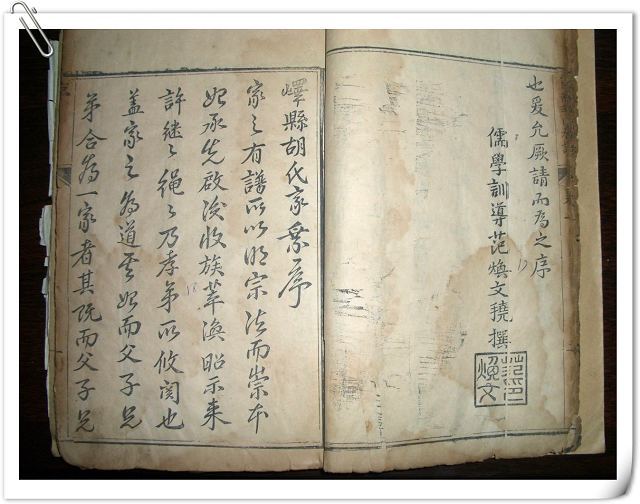 也爰允厥請而為之序
儒學訓導范煥文撰
范印
煥文
嶧縣胡氏家乘序
家之有譜所以明宗法而崇本
始承先啟後收族萃渙昭示来
許継〻繩〻乃孝弟所攸関也
盖家之為道始而父子兄
弟合為一家者其既而父子兄